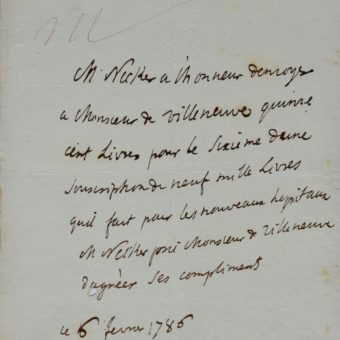 M. Necker a l'honneur d'envoyer
a Monsieur de Villeneuve quinze
cent Livres pour le Sixième d'une
Souscription de neuf mille Livres
qu'il fait pour les nouveaux hopitaux
M Necker prie Monsieur de Villeneuve
d'agréer Ses compliment
ce 6 fevrier 1786